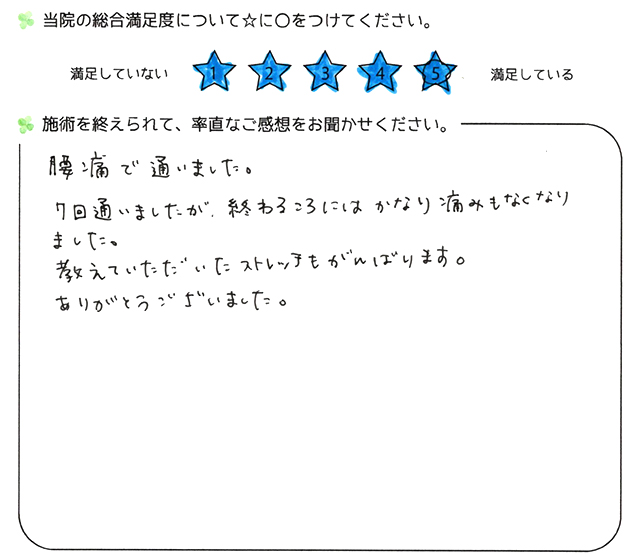 当院の総合満足度について☆に〇をつけてください。
満足していない 1 2 3 4 5 満足している
施術を終えられて、率直なご感想をお聞かせください。
腰痛で通いました。
7回通いましたが、終わるころにはかなり痛みもなくなり
ました。
教えていただいたストレッチもがんばります。
ありがとうございました。